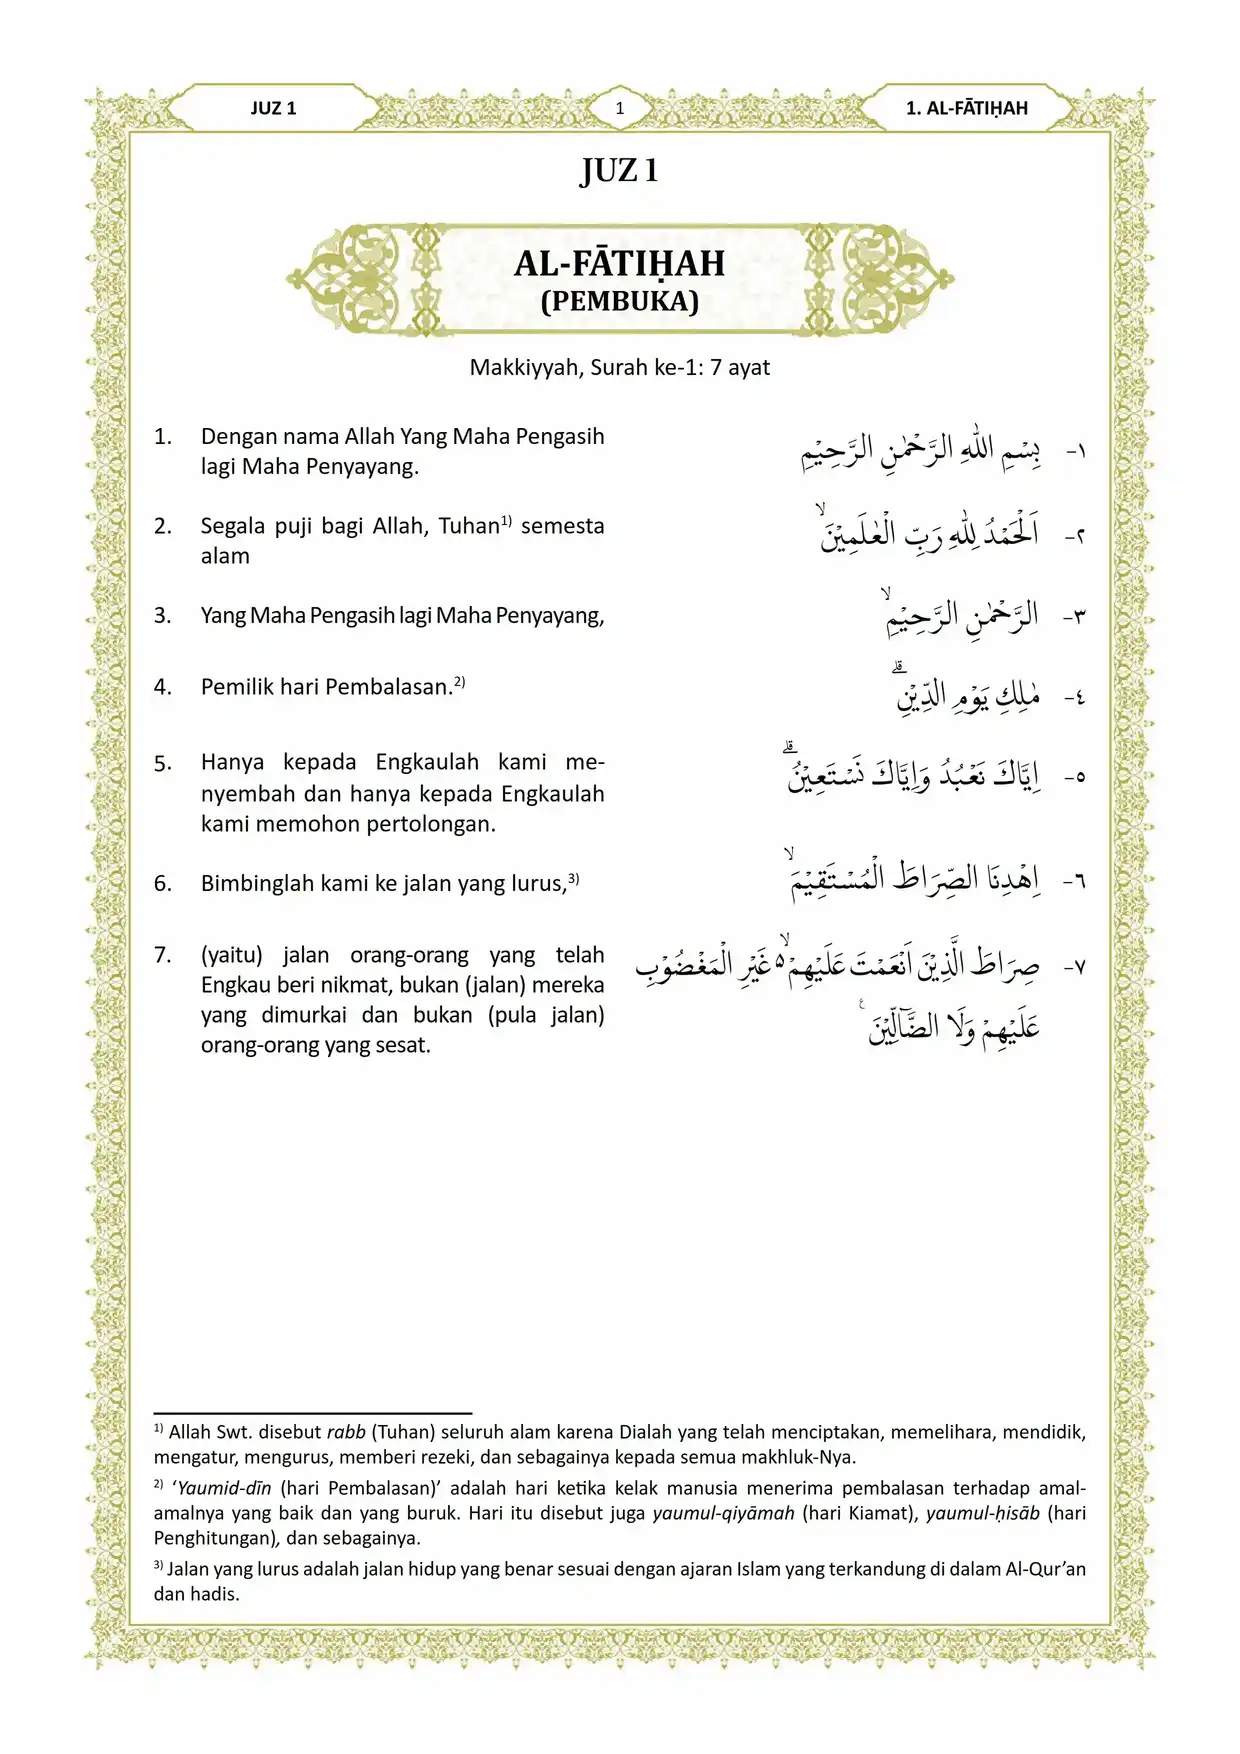 JUZ 1
1
1. AL-FĀTIḤAH
JUZ 1
AL-FĀTIḤAH
(PEMBUKA)
Makkiyyah, Surah ke-1: 7 ayat
1. Dengan nama Allah Yang Maha Pengasih
lagi Maha Penyayang.
١- بِسْمِ اللّٰهِ الرَّحْمٰنِ الرَّحِيْمِ
2. Segala puji bagi Allah, Tuhan¹⁾ semesta
alam
٢- اَلْحَمْدُ لِلّٰهِ رَبِّ الْعٰلَمِيْنَۙ
3. Yang Maha Pengasih lagi Maha Penyayang,
٣- الرَّحْمٰنِ الرَّحِيْمِۙ
4. Pemilik hari Pembalasan.²⁾
٤- مٰلِكِ يَوْمِ الدِّيْنِۗ
5. Hanya kepada Engkaulah kami me-
nyembah dan hanya kepada Engkaulah
kami memohon pertolongan.
٥- اِيَّاكَ نَعْبُدُ وَاِيَّاكَ نَسْتَعِيْنُۗ
6. Bimbinglah kami ke jalan yang lurus,³⁾
٦- اِهْدِنَا الصِّرَاطَ الْمُسْتَقِيْمَۙ
7. (yaitu) jalan orang-orang yang telah
Engkau beri nikmat, bukan (jalan) mereka
yang dimurkai dan bukan (pula jalan)
orang-orang yang sesat.
٧- صِرَاطَ الَّذِيْنَ اَنْعَمْتَ عَلَيْهِمْ ەۙ غَيْرِ الْمَغْضُوْبِ
عَلَيْهِمْ وَلَا الضَّاۤلِّيْنَ ࣖ
¹⁾ Allah Swt. disebut rabb (Tuhan) seluruh alam karena Dialah yang telah menciptakan, memelihara, mendidik,
mengatur, mengurus, memberi rezeki, dan sebagainya kepada semua makhluk-Nya.
²⁾ ‘Yaumid-dīn (hari Pembalasan)’ adalah hari ketika kelak manusia menerima pembalasan terhadap amal-
amalnya yang baik dan yang buruk. Hari itu disebut juga yaumul-qiyāmah (hari Kiamat), yaumul-ḥisāb (hari
Penghitungan), dan sebagainya.
³⁾ Jalan yang lurus adalah jalan hidup yang benar sesuai dengan ajaran Islam yang terkandung di dalam Al-Qur’an
dan hadis.